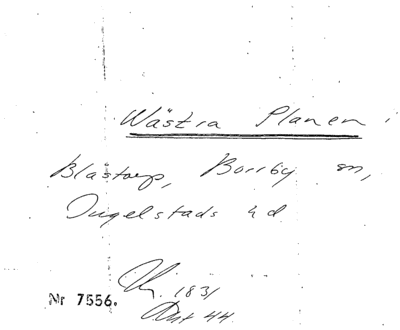 Wästra Planen
Blästorp, Borrby sn,
Ingelstads hd
1831
Nr 7556.
44